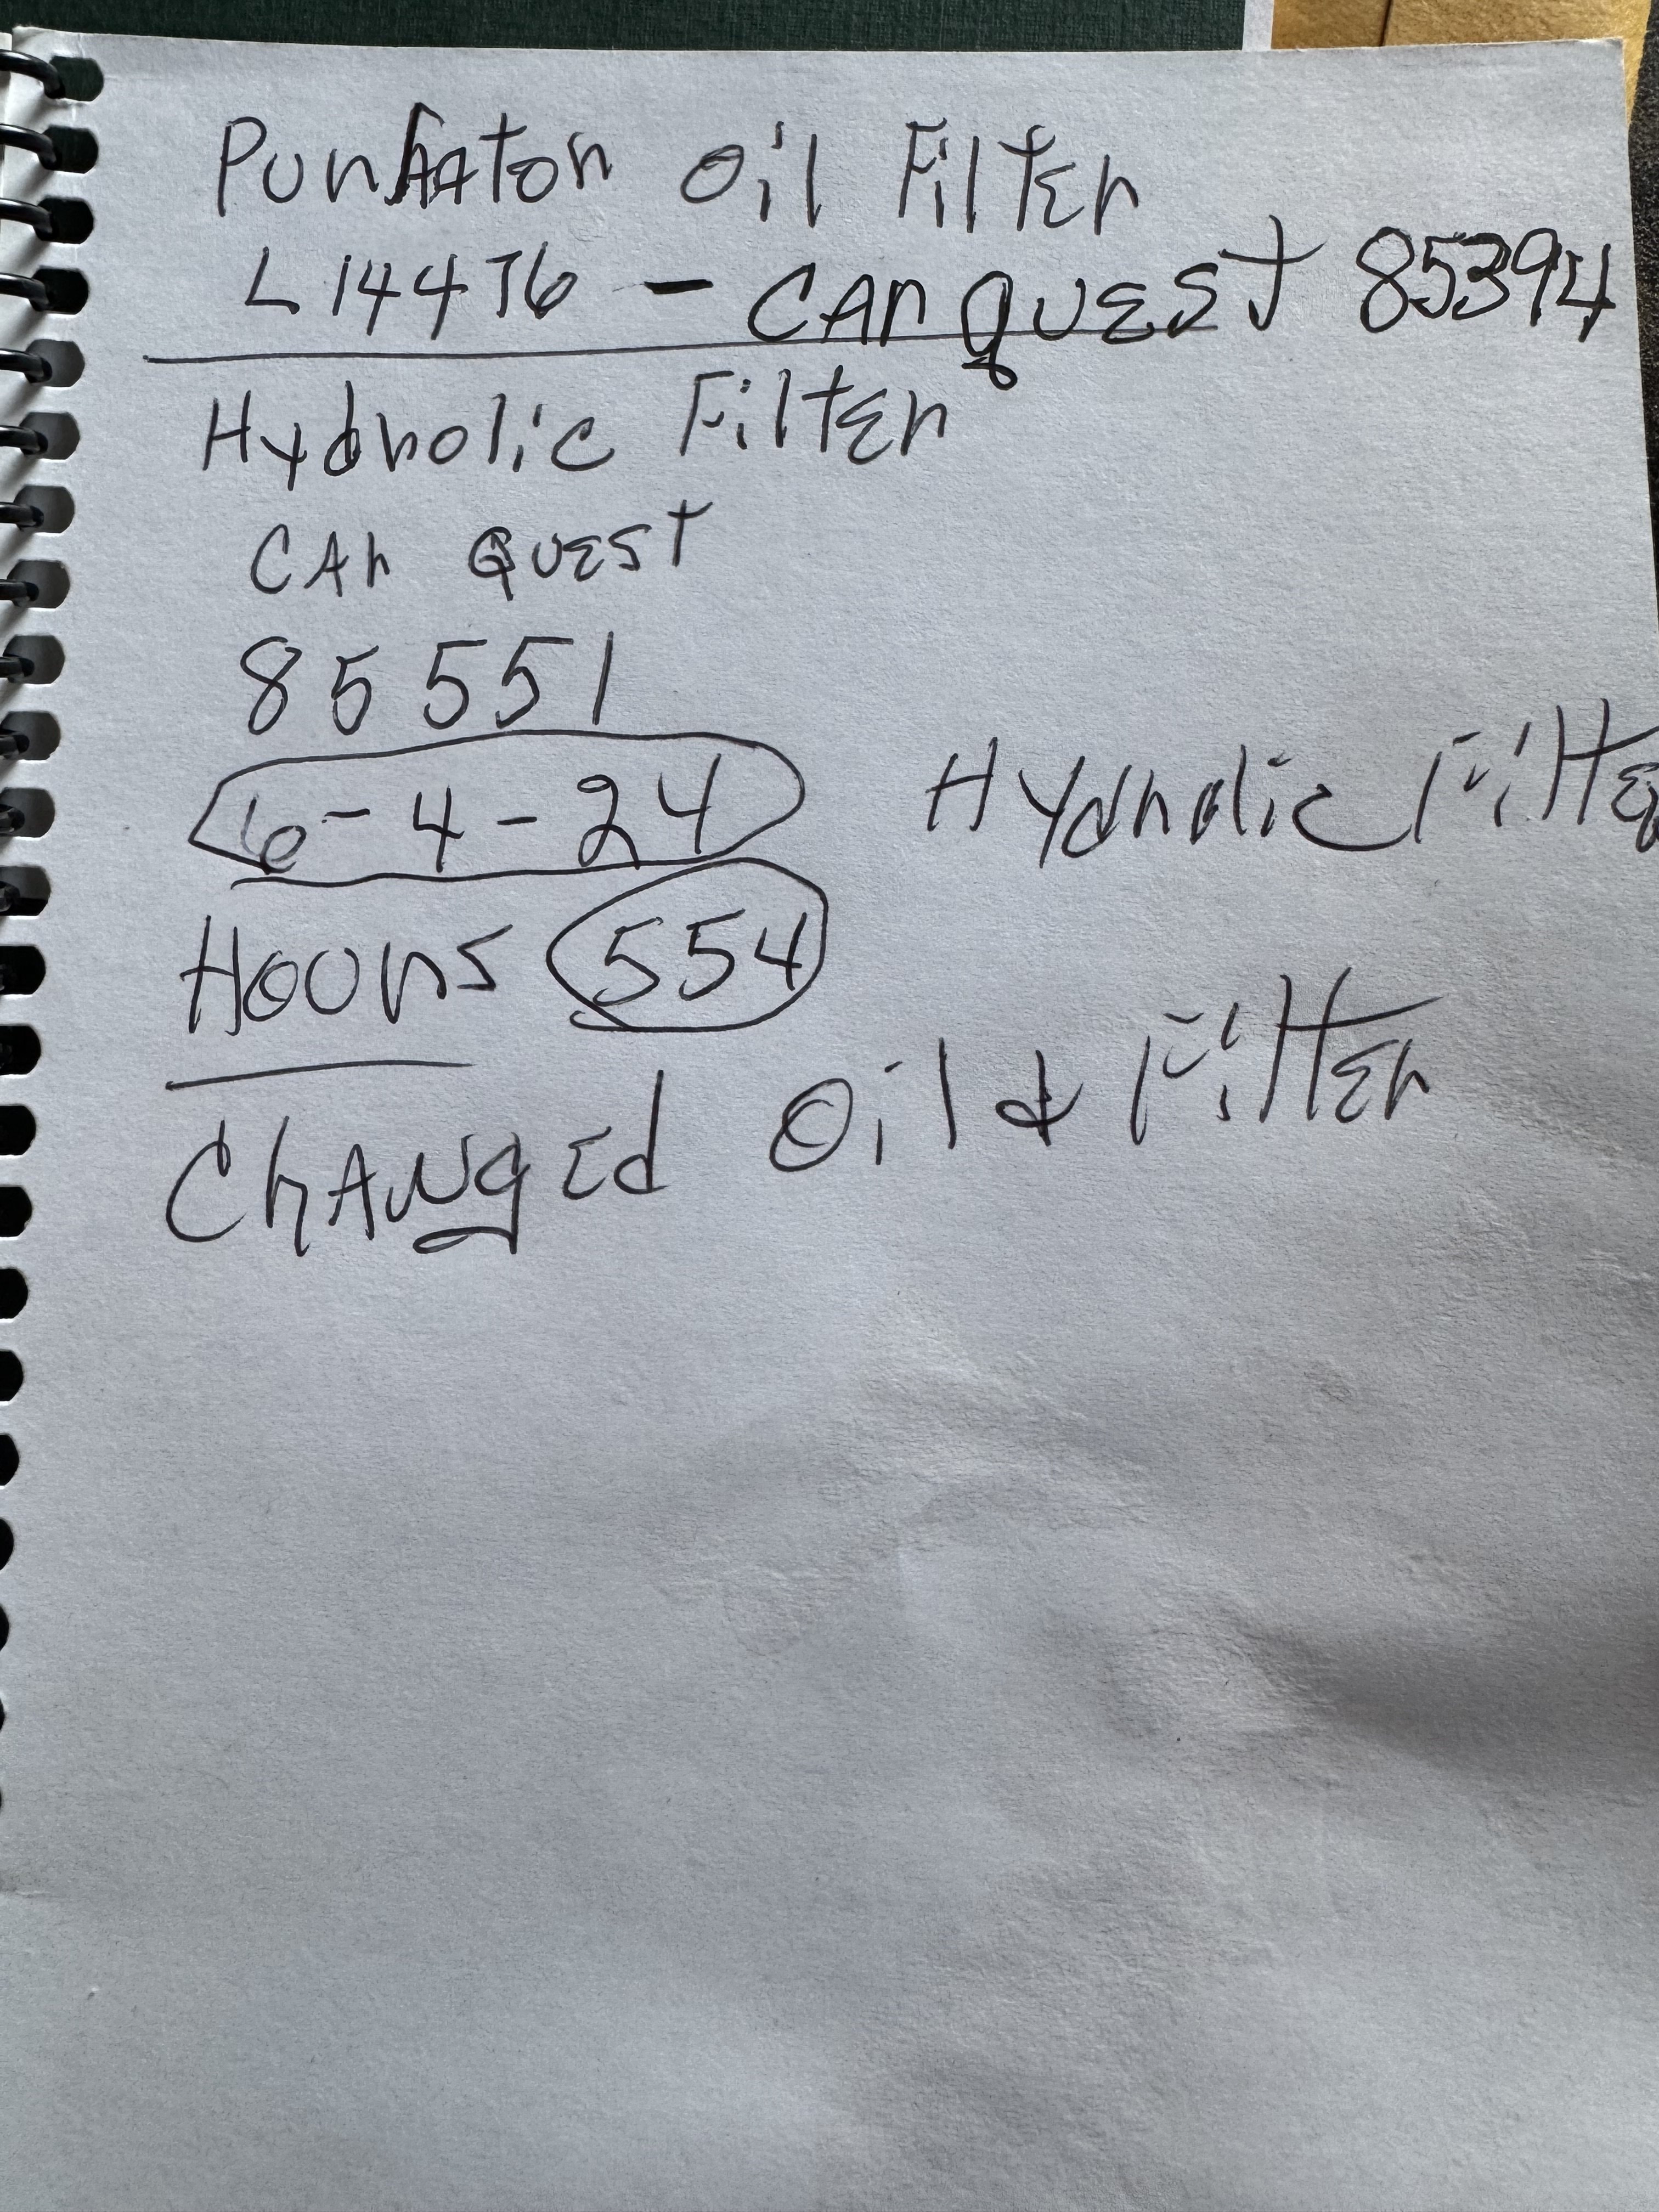 Purlator Oil Filter
L14476 - CAr quEst 85394
Hydrolic Filter
CAr QuEst
85551
6-4-24 Hydrolic Filte
Hours 554
ChAngEd Oil & FiltEr